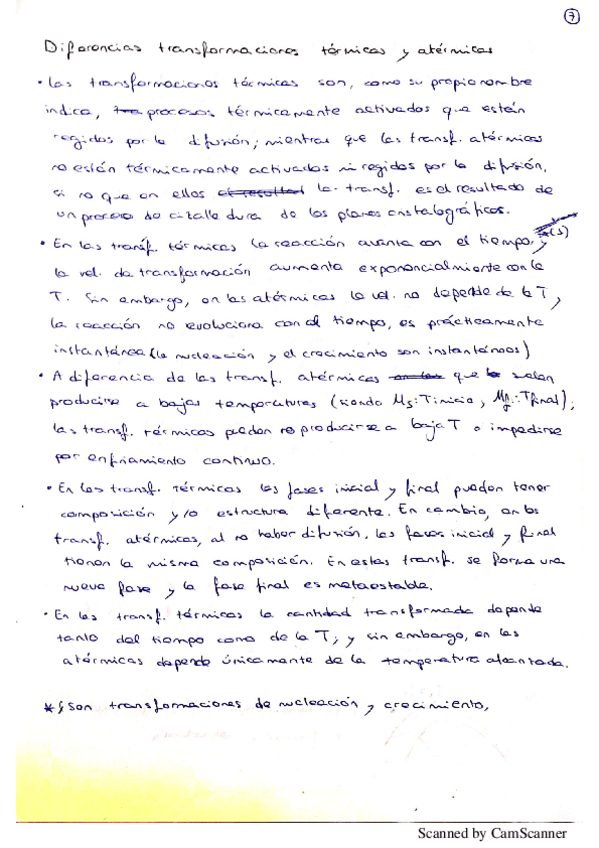 7
Diferencias transformaciones térmicas y atérmicas
• Las transformaciones térmicas son, como su propio nombre
indica, procesos térmicamente activados que están
regidos por la difusión; mientras que las transf. atérmicas
no están térmicamente activados ni regidos por la difusión,
si no que en ellos la transf. es el resultado de
un proceso de cizalladura de los planos cristalográficos.
• En las transf. térmicas la reacción avanza con el tiempo, y *(§)
la vel. de transformación aumenta exponencialmente con la
T. Sin embargo, en las atérmicas la vel. no depende de la T,
la reacción no evoluciona con el tiempo, es prácticamente
instantánea (la nucleación y el crecimiento son instantáneos)
• A diferencia de las transf. atérmicas que suelen
producirse a bajas temperaturas (siendo Ms: Tinicio, Mf: Tfinal),
las transf. térmicas pueden no producirse a baja T o impedirse
por enfriamiento continuo.
• En las transf. térmicas las fases inicial y final pueden tener
composición y/o estructura diferente. En cambio, en las
transf. atérmicas, al no haber difusión, las fases inicial y final
tienen la misma composición. En estas transf. se forma una
nueva fase y la fase final es metaestable.
• En las transf. térmicas la cantidad transformada depende
tanto del tiempo como de la T; y sin embargo, en las
atérmicas depende únicamente de la temperatura alcanzada.
* § Son transformaciones de nucleación y crecimiento,
Scanned by CamScanner